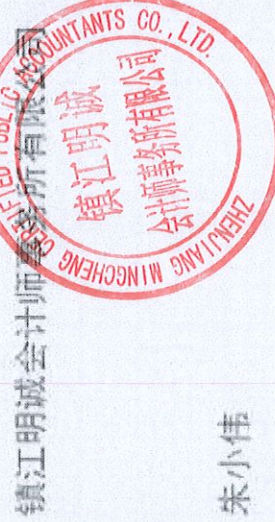 镇江明诚会计师事务所有限公司
ZHENJIANG MINGCHENG CERTIFIED PUBLIC ACCOUNTANTS CO., LTD.
镇江明诚
会计师事务所有限公司
朱小伟